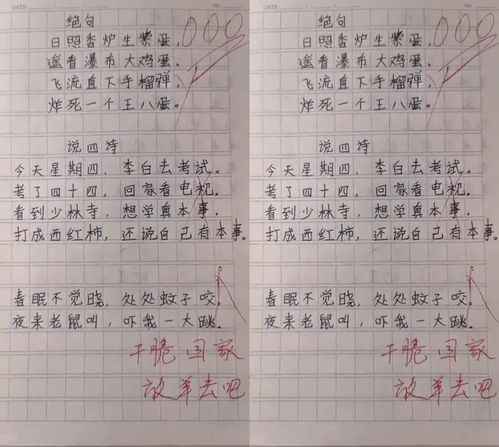 绝句
日照香炉生紫蛋,
遥看瀑布大鸡蛋。
飞流直下手榴弹,
炸死一个王八蛋。
说四诗
今天星期四,李白去考试。
考了四十四,回家看电视。
看到少林寺,想学真本事。
打成西红柿,还说自己有本事。
春眠不觉晓,处处蚊子咬。
夜来老鼠叫,吓我一大跳。
干脆回家
放羊去吧
绝句
日照香炉生紫蛋,
遥看瀑布大鸡蛋。
飞流直下手榴弹,
炸死一个王八蛋。
说四诗
今天星期四,李白去考试。
考了四十四,回家看电视。
看到少林寺,想学真本事。
打成西红柿,还说自己有本事。
春眠不觉晓,处处蚊子咬。
夜来老鼠叫,吓我一大跳。
干脆回家
放羊去吧